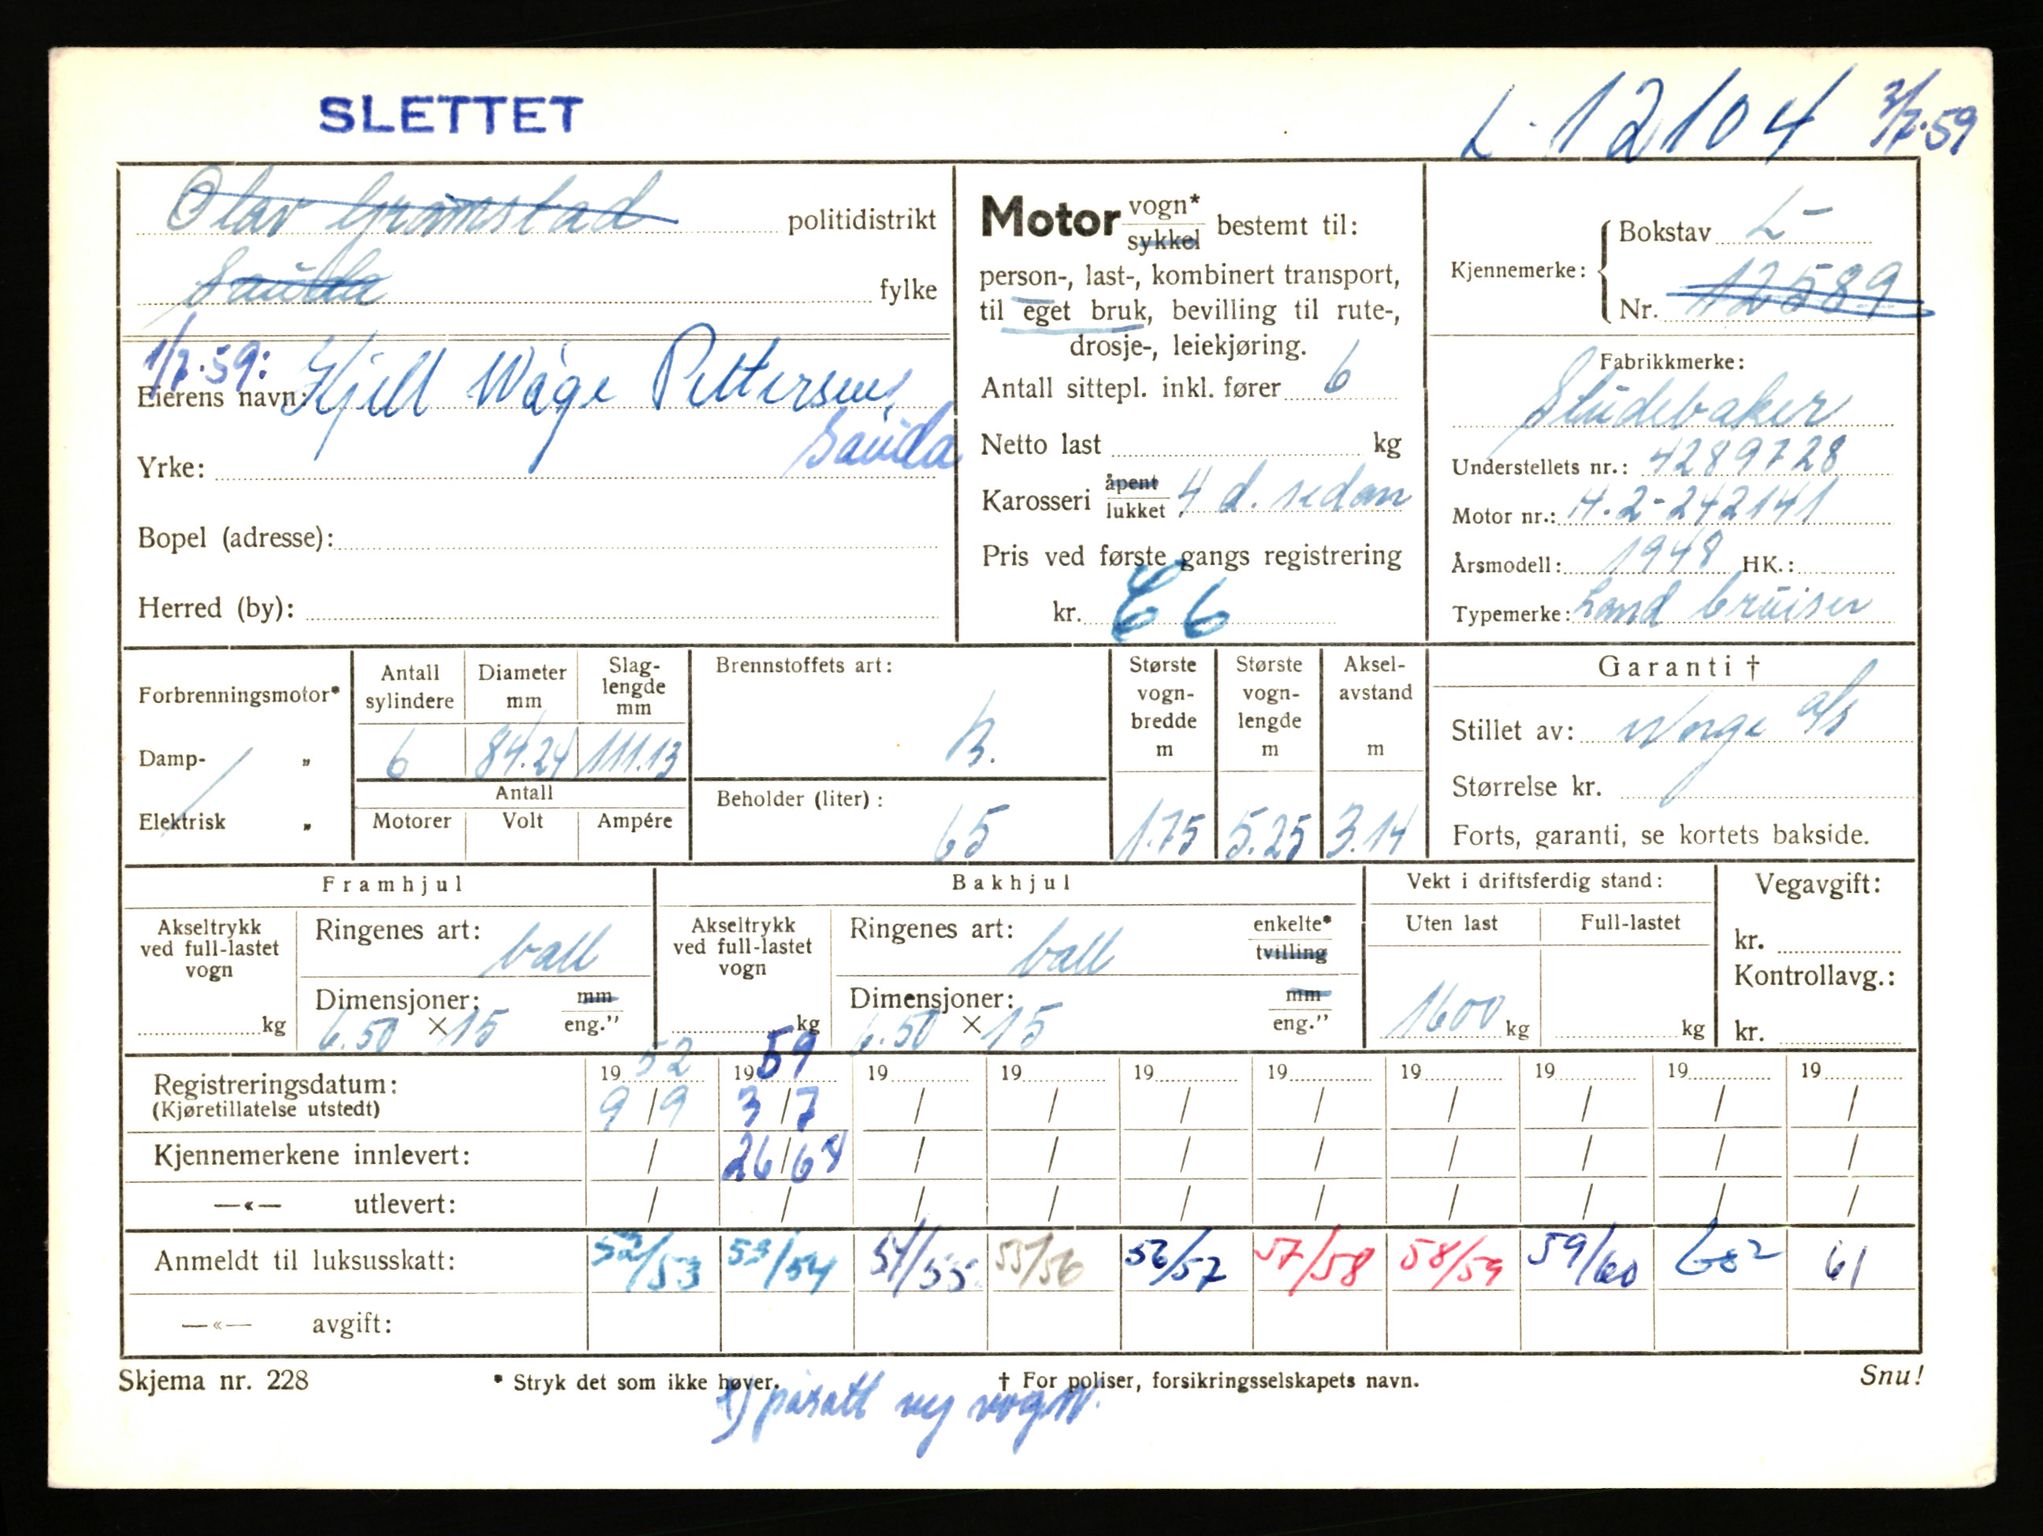 SLETTET
L-12104 3/7-59
Olav Grømstad politidistrikt
Sauda fylke
1/7-59:
Eierens navn: Kjell Wåge Pettersen,
Sauda
Yrke:
Bopel (adresse):
Herred (by):
Motor vogn* sykkel bestemt til:
person-, last-, kombinert transport,
til eget bruk, bevilling til rute-,
drosje-, leiekjøring.
Antall sittepl. inkl. fører 6
Netto last kg
Karosseri åpent lukket 4 d. sedan
Pris ved første gangs registrering
kr. 6
Kjennemerke: Bokstav L-
Nr. 12589
Fabrikkmerke:
Studebaker
Understellets nr.: 4289728
Motor nr.: H.2-242141
Årsmodell: 1948 HK.:
Typemerke: Land Cruiser
Forbrenningsmotor*
Damp- „
Elektrisk „
Antall sylindere 6
Diameter mm 84.24
Slaglengde mm 111.13
Antall
Motorer Volt Ampére
Brennstoffets art: B.
Beholder (liter): 65
Største vognbredde m 1.75
Største vognlengde m 5.25
Akselavstand m 3.14
Garanti †
Stillet av: Norge A/S
Størrelse kr.
Forts, garanti, se kortets bakside.
Framhjul
Akseltrykk ved full-lastet vogn kg
Ringenes art: ball
Dimensjoner: mm eng."
6.50 × 15
Bakhjul
Akseltrykk ved full-lastet vogn kg
Ringenes art: ball enkelte* tvilling
Dimensjoner: mm eng."
6.50 × 15
Vekt i driftsferdig stand:
Uten last Full-lastet
1600 kg kg
Vegavgift:
kr.
Kontrollavg.:
kr.
Registreringsdatum: 1952 1959 19 19 19 19 19 19 19 19
(Kjøretillatelse utstedt) 9/9 3/7 / / / / / / / /
Kjennemerkene innlevert: / 26/64 / / / / / / / /
—«— utlevert: / / / / / / / / / /
Anmeldt til luksusskatt: 52/53 53/54 54/55 55/56 56/57 57/58 58/59 59/60 61
—«— avgift:
Skjema nr. 228 * Stryk det som ikke høver. † For poliser, forsikringsselskapets navn. Snu!
påsatt ny vogn.